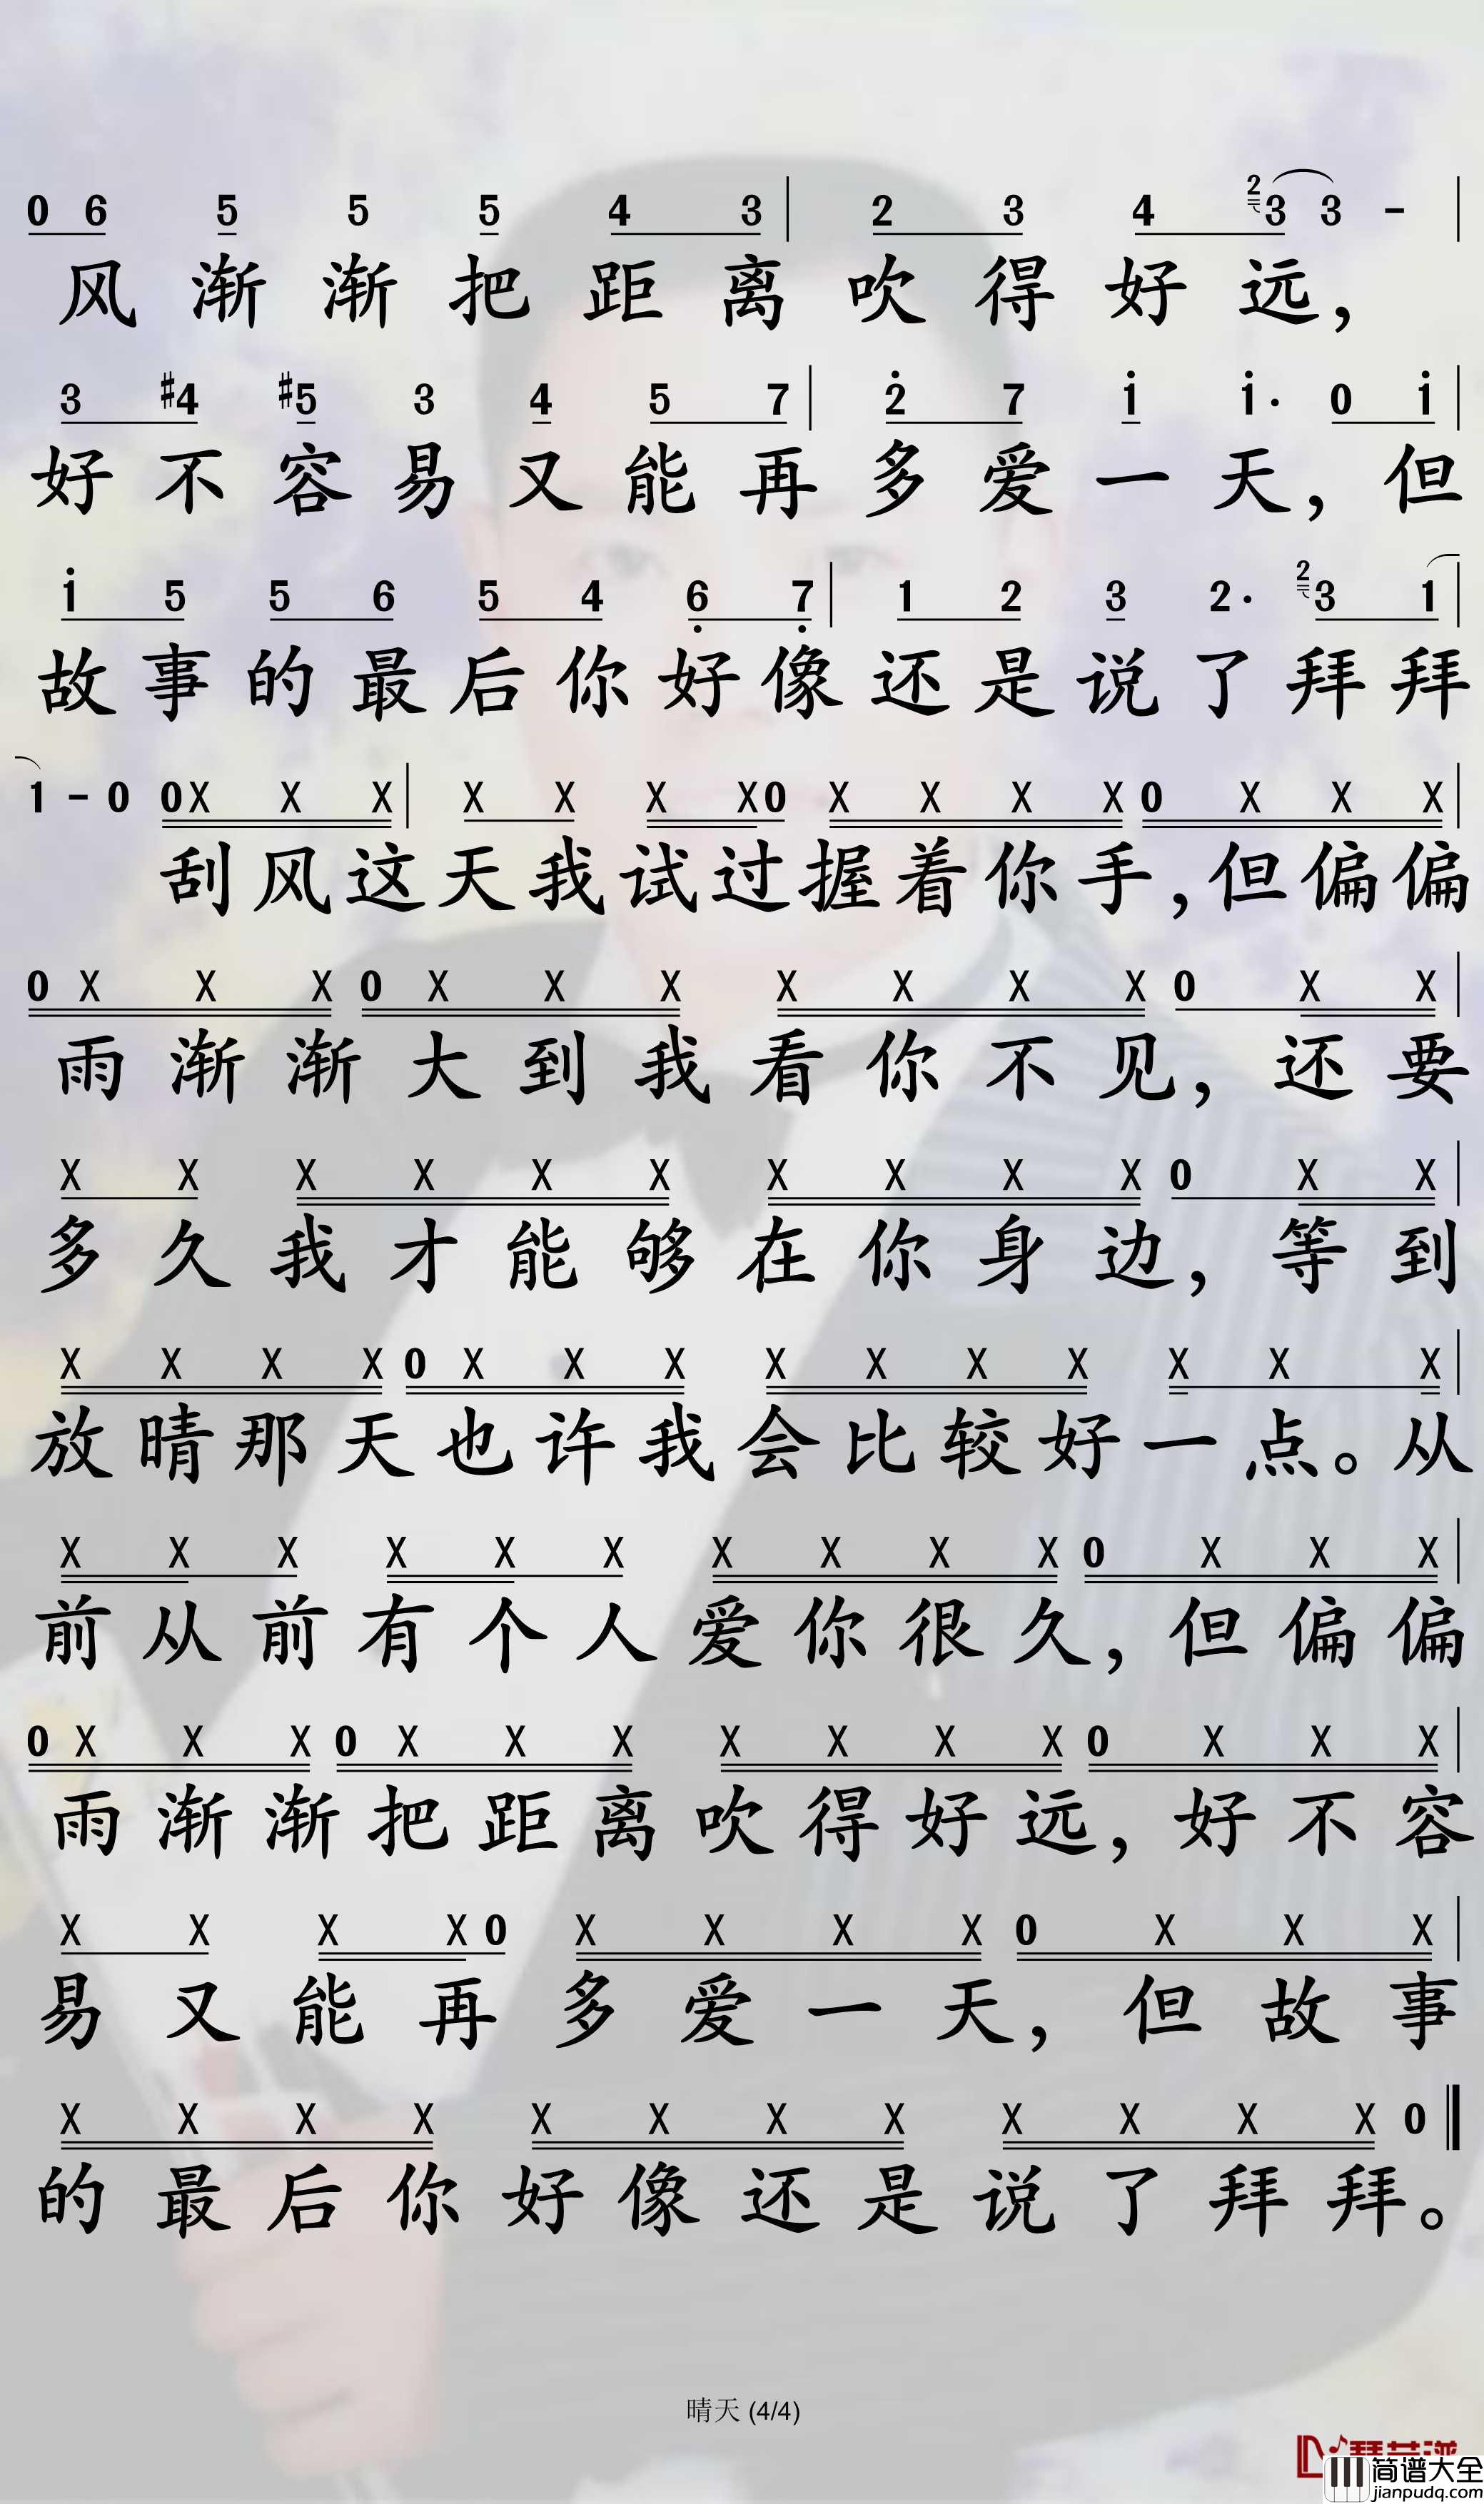 0 6 5 5 5 4 3 | 2 3 4 2 3 3 - |
风渐渐把距离吹得好远，
3 #4 #5 3 4 5 7 | 2 7 1 1· 0 1 |
好不容易又能再多爱一天，但
1 5 5 6 5 4 6 7 | 1 2 3 2· 2 3 1 |
故事的最后你好像还是说了拜拜
1 - 0 0 X X X | X X X X 0 X X X X 0 X X X |
刮风这天我试过握着你手，但偏偏
0 X X X 0 X X X X X X X 0 X X |
雨渐渐大到我看你不见，还要
X X X X X X X X X X 0 X X |
多久我才能够在你身边，等到
X X X X 0 X X X X X X X X X X |
放晴那天也许我会比较好一点。从
X X X X X X X X X X 0 X X X |
前从前有个人爱你很久，但偏偏
0 X X X 0 X X X X X X X 0 X X X |
雨渐渐把距离吹得好远，好不容
X X X X 0 X X X X 0 X X X |
易又能再多爱一天，但故事
X X X X X X X X X X X X 0
的最后你好像还是说了拜拜。
晴天 (4/4)
简谱大全
jianpudq.com